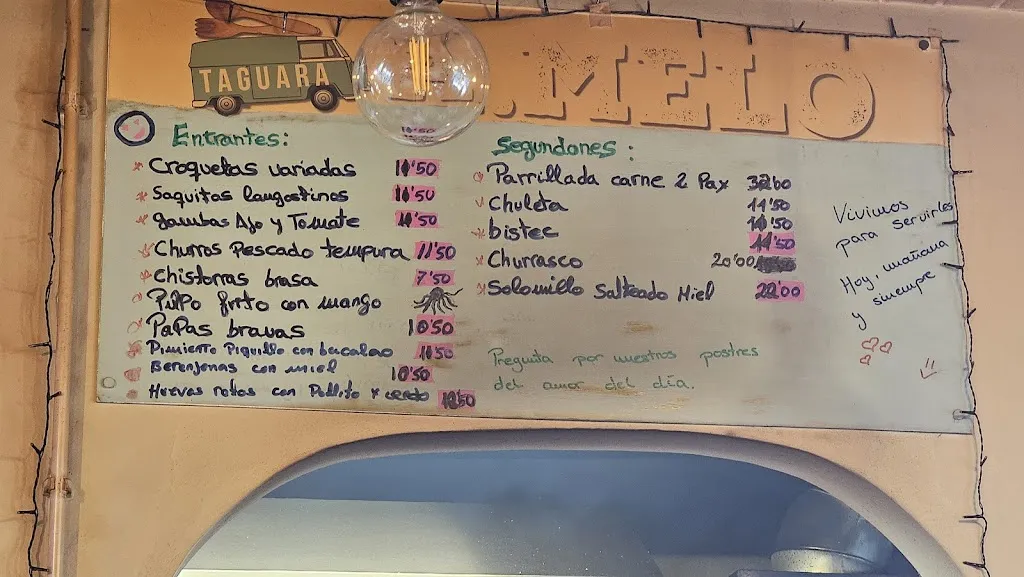 TAGUARA
.MELO
Entrantes:
Croquetas variadas 11'50
Saquitos langostinos 11'50
gambas Ajo y Tomate 11'50
Churros Pescado tempura 11'50
Chistorras brasa 7'50
Pulpo frito con mango
Papas bravas 10'50
Pimiento Piquillo con bacalao 11'50
Berenjenas con miel 10'50
Huevos rotos con Pollito y cerdo
Segundones:
Parrillada carne 2 Pax
Chuleta 11'50
bistec
11'50
Churrasco 20'00
Solomillo Salteado Miel 22'00
Pregunta por nuestros postres
del amor del día.
Vivimos
para servirles
Hoy, mañana
y siempre